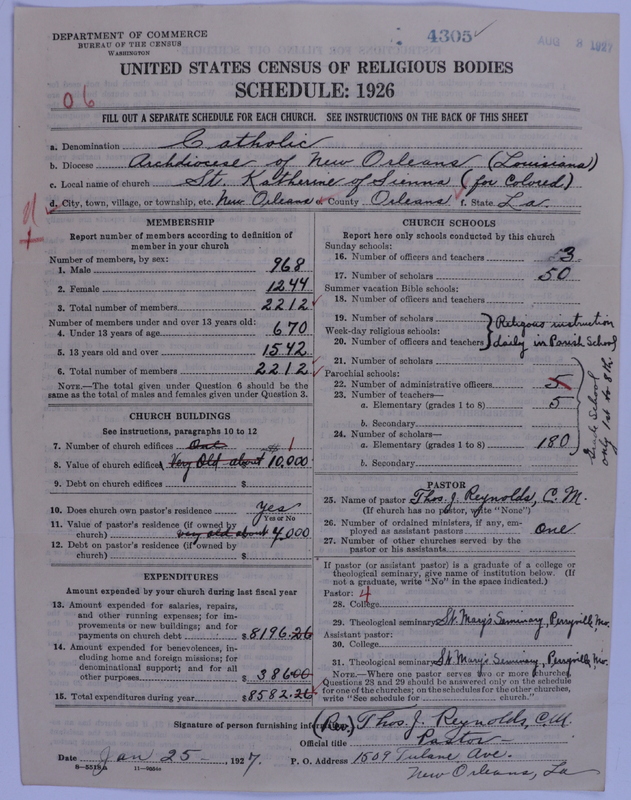 DEPARTMENT OF COMMERCE
BUREAU OF THE CENSUS
WASHINGTON
4305
AUG 8 1927
UNITED STATES CENSUS OF RELIGIOUS BODIES
SCHEDULE: 1926
06
FILL OUT A SEPARATE SCHEDULE FOR EACH CHURCH. SEE INSTRUCTIONS ON THE BACK OF THIS SHEET
a. Denomination Catholic
b. Diocese Archdiocese of New Orleans (Louisiana)
c. Local name of church St. Katherine of Sienna (for Colored)
d. City, town, village, or township, etc. New Orleans e. County Orleans f. State La.
MEMBERSHIP
Report number of members according to definition of member in your church
Number of members, by sex:
1. Male 968
2. Female 1244
3. Total number of members 2212
Number of members under and over 13 years old:
4. Under 13 years of age 670
5. 13 years old and over 1542
6. Total number of members 2212
NOTE.—The total given under Question 6 should be the same as the total of males and females given under Question 3.
CHURCH BUILDINGS
See instructions, paragraphs 10 to 12
7. Number of church edifices One 1
8. Value of church edifices Very Old about 10,000
9. Debt on church edifices $
10. Does church own pastor's residence Yes
Yes or No
11. Value of pastor's residence (if owned by
church) very old about 4,000
12. Debt on pastor's residence (if owned by
church) $
EXPENDITURES
Amount expended by your church during last fiscal year
13. Amount expended for salaries, repairs,
and other running expenses; for im-
provements or new buildings; and for
payments on church debt $8196.26
14. Amount expended for benevolences, in-
cluding home and foreign missions; for
denominational support; and for all
other purposes 386.00
15. Total expenditures during year $8582.26
CHURCH SCHOOLS
Report here only schools conducted by this church
Sunday schools:
16. Number of officers and teachers 3
17. Number of scholars 50
Summer vacation Bible schools:
18. Number of officers and teachers
19. Number of scholars
Week-day religious schools:
20. Number of officers and teachers
Religious instruction
daily in Parish School
21. Number of scholars
Parochial schools:
22. Number of administrative officers 5
23. Number of teachers—
a. Elementary (grades 1 to 8) 5
b. Secondary
24. Number of scholars—
a. Elementary (grades 1 to 8) 180
b. Secondary
Grade School
only 1st to 8th.
PASTOR
25. Name of pastor Thos. J. Reynolds, C.M.
(If church has no pastor, write "None")
26. Number of ordained ministers, if any, em-
ployed as assistant pastors One
27. Number of other churches served by the
pastor or his assistants
If pastor (or assistant pastor) is a graduate of a college or
theological seminary, give name of institution below. (If
not a graduate, write "No" in the space indicated.)
Pastor: 4
28. College
29. Theological seminary St. Mary's Seminary, Perryville, Mo.
Assistant pastor:
30. College
31. Theological seminary St. Mary's Seminary, Perryville, Mo.
NOTE.—Where one pastor serves two or more churches,
Questions 28 and 29 should be answered only on the schedule
for one of the churches; on the schedules for the other churches,
write "See schedule for church."
Signature of person furnishing information (Rev.) Thos. J. Reynolds, C.M.
Official title Pastor
Date Jan 25, 1927. P. O. Address 1509 Tulane Ave.
New Orleans, La